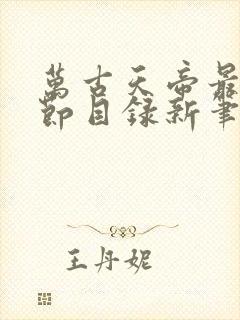 萬古天帝最
節目錄新筆
王丹妮